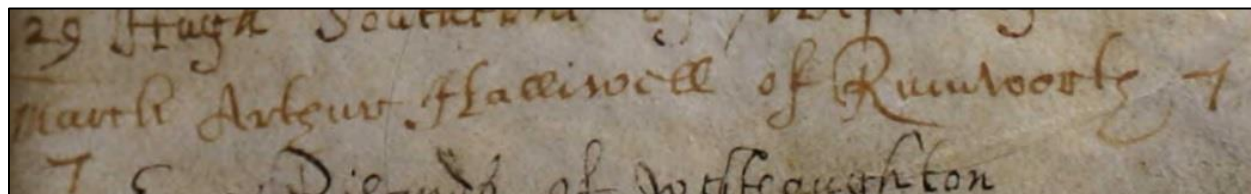 29 Hugh of
March Arthur Halliwell of Rumworth 7
7 of Westhoughton